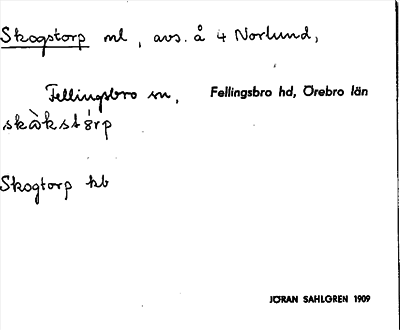 Skogstorp ml, avs. å 4 Norlund,
Fellingsbro sn, Fellingsbro hd, Örebro län
Skogtorp kb
JÖRAN SAHLGREN 1909